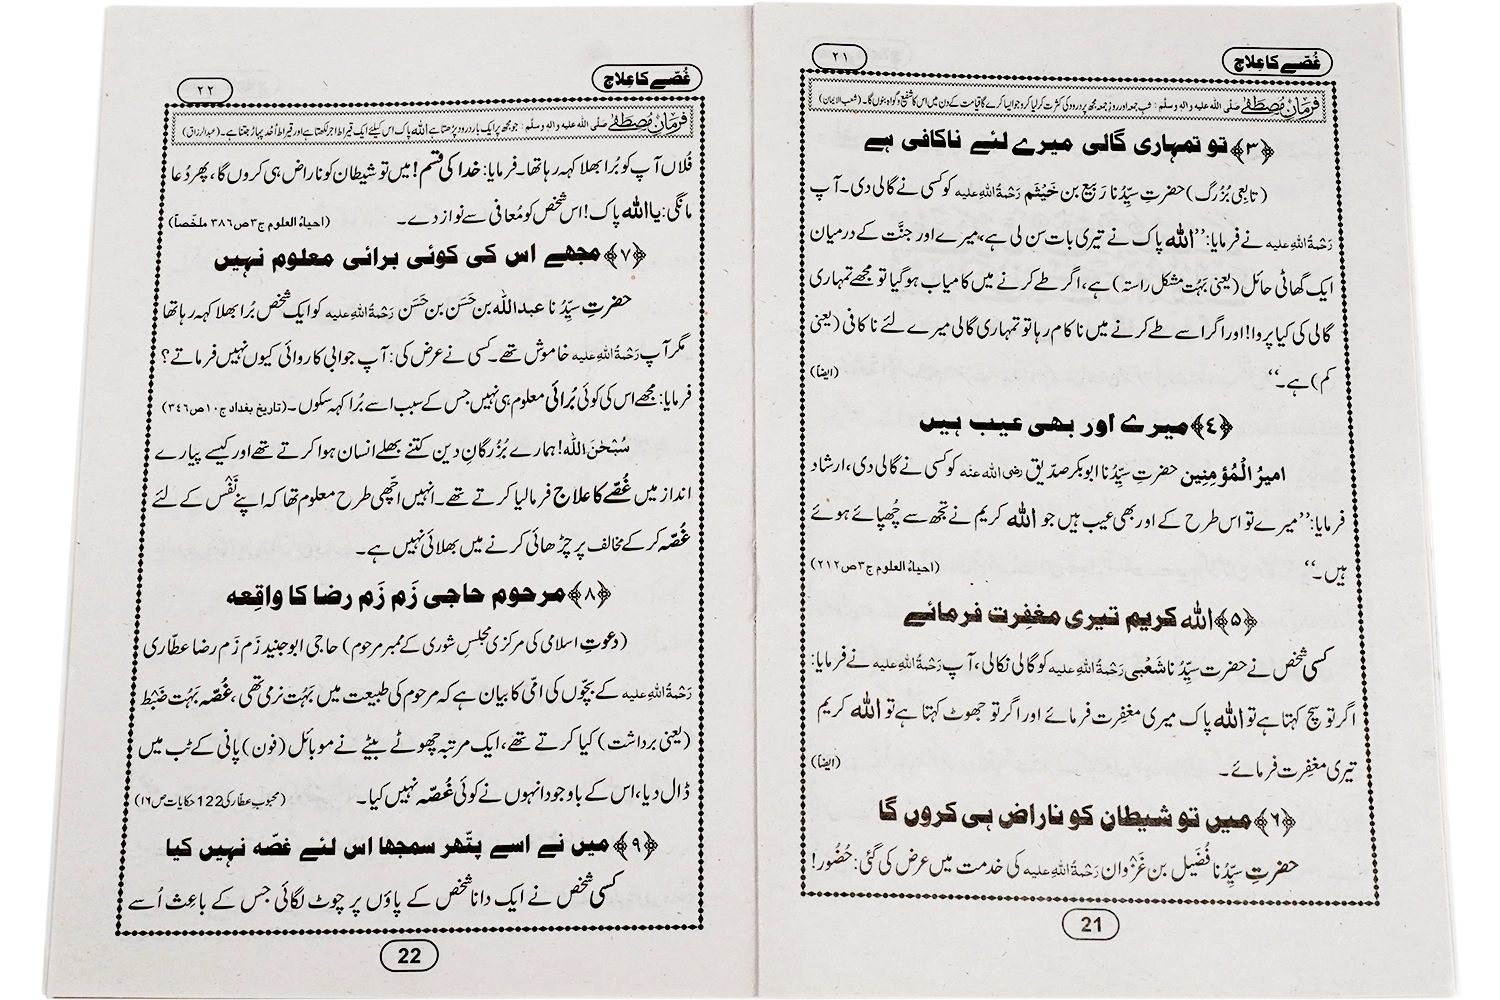 غُصّے کا عِلاج
٢١
فرمانِ مُصطَفٰے صَلَّی اللہ علیہ والہٖ وسلَّم: شبِ جمعہ اور روزِ جمعہ مجھ پر درود کی کثرت کر لیا کرو جو ایسا کرے گا قیامت کے دن میں اس کا شفیع و گواہ بنوں گا۔ (شعب الایمان)
﴿٣﴾ تو تمہاری گالی میرے لئے ناکافی ہے
(تابِعی بُزُرگ) حضرتِ سیِّدُنا رَبیع بن خَیْثَم رَحْمۃُ اللہِ علیہ کو کسی نے گالی دی۔ آپ
رَحْمۃُ اللہِ علیہ نے فرمایا: ’’اللہ پاک نے تیری بات سن لی ہے، میرے اور جنَّت کے درمیان
ایک گھاٹی حائل (یعنی بَہُت مشکل راستہ) ہے، اگر طے کرنے میں کامیاب ہو گیا تو مجھے تمہاری
گالی کی کیا پروا! اور اگر اسے طے کرنے میں ناکام رہا تو تمہاری گالی میرے لئے ناکافی (یعنی
کم) ہے۔‘‘ (ایضاً)
﴿٤﴾ میرے اور بھی عیب ہیں
امیرُ الْمُؤمِنِین حضرتِ سیِّدُنا ابو بکر صدّیق رضی اللہ عنہ کو کسی نے گالی دی، ارشاد
فرمایا: ’’میرے تو اس طرح کے اور بھی عیب ہیں جو اللہ کریم نے تجھ سے چُھپائے ہوئے
ہیں۔‘‘ (احیاءُ العلوم ج٣ص٢١٢)
﴿٥﴾ اللہ کریم تیری مغفِرت فرمائے
کسی شخص نے حضرتِ سیِّدُنا شَعْبی رَحْمۃُ اللہِ علیہ کو گالی نکالی، آپ رَحْمۃُ اللہِ علیہ نے فرمایا:
اگر تو سچ کہتا ہے تو اللہ پاک میری مغفِرت فرمائے اور اگر تو جھوٹ کہتا ہے تو اللہ کریم
تیری مغفِرت فرمائے۔ (ایضاً)
﴿٦﴾ میں تو شیطان کو ناراض ہی کروں گا
حضرتِ سیِّدُنا فُضَیل بن غَزْوان رَحْمۃُ اللہِ علیہ کی خدمت میں عرض کی گئی: حُضُور!
21
غُصّے کا عِلاج
٢٢
فرمانِ مُصطَفٰے صَلَّی اللہ علیہ والہٖ وسلَّم: جو مجھ پر ایک بار درود پڑھتا ہے اللہ پاک اس کیلئے ایک قیراط اجر لکھتا ہے اور قیراط اُحد پہاڑ جتنا ہے۔ (عبدالرزاق)
فُلاں آپ کو بُرا بھلا کہہ رہا تھا۔ فرمایا: خدا کی قسم! میں تو شیطان کو ناراض ہی کروں گا، پھر دُعا
مانگی: یا اللہ پاک! اس شخص کو مُعافی سے نواز دے۔ (احیاءُ العلوم ج٣ص٣٨٦ ملخّصاً)
﴿٧﴾ مجھے اس کی کوئی برائی معلوم نہیں
حضرتِ سیِّدُنا عبدُاللہ بن حَسَن بن حَسَن رَحْمۃُ اللہِ علیہ کو ایک شخص بُرا بھلا کہہ رہا تھا
مگر آپ رَحْمۃُ اللہِ علیہ خاموش تھے۔ کسی نے عرض کی: آپ جوابی کاروائی کیوں نہیں فرماتے؟
فرمایا: مجھے اس کی کوئی بُرائی معلوم ہی نہیں جس کے سبب اسے بُرا کہہ سکوں۔ (تاریخ بغداد ج١٠ص٣٤٦)
سُبْحٰنَ اللہ! ہمارے بُزُرگانِ دین کتنے بھلے انسان ہوا کرتے تھے اور کیسے پیارے
انداز میں غُصّے کا علاج فرما لیا کرتے تھے۔ انہیں اچّھی طرح معلوم تھا کہ اپنے نَفْس کے لئے
غُصّہ کر کے مخالف پر چڑھائی کرنے میں بھلائی نہیں ہے۔
﴿٨﴾ مرحوم حاجی زَم زَم رضا کا واقِعہ
(دعوتِ اسلامی کی مرکزی مجلسِ شوریٰ کے ممبر مرحوم) حاجی ابو جنید زَم زَم رضا عطّاری
رَحْمۃُ اللہِ علیہ کے بچّوں کی امّی کا بیان ہے کہ مرحوم کی طبیعت میں بَہُت نرمی تھی، غُصّہ بَہُت ضَبْط
(یعنی برداشت) کیا کرتے تھے، ایک مرتبہ چھوٹے بیٹے نے موبائل (فون) پانی کے ٹب میں
ڈال دیا، اس کے باوجود انہوں نے کوئی غُصّہ نہیں کیا۔ (محبوبِ عطار کی 122 حکایات ص١٦)
﴿٩﴾ میں نے اسے پتّھر سمجھا اس لئے غصّہ نہیں کیا
کسی شخص نے ایک دانا شخص کے پاؤں پر چوٹ لگائی جس کے باعِث اُسے
22